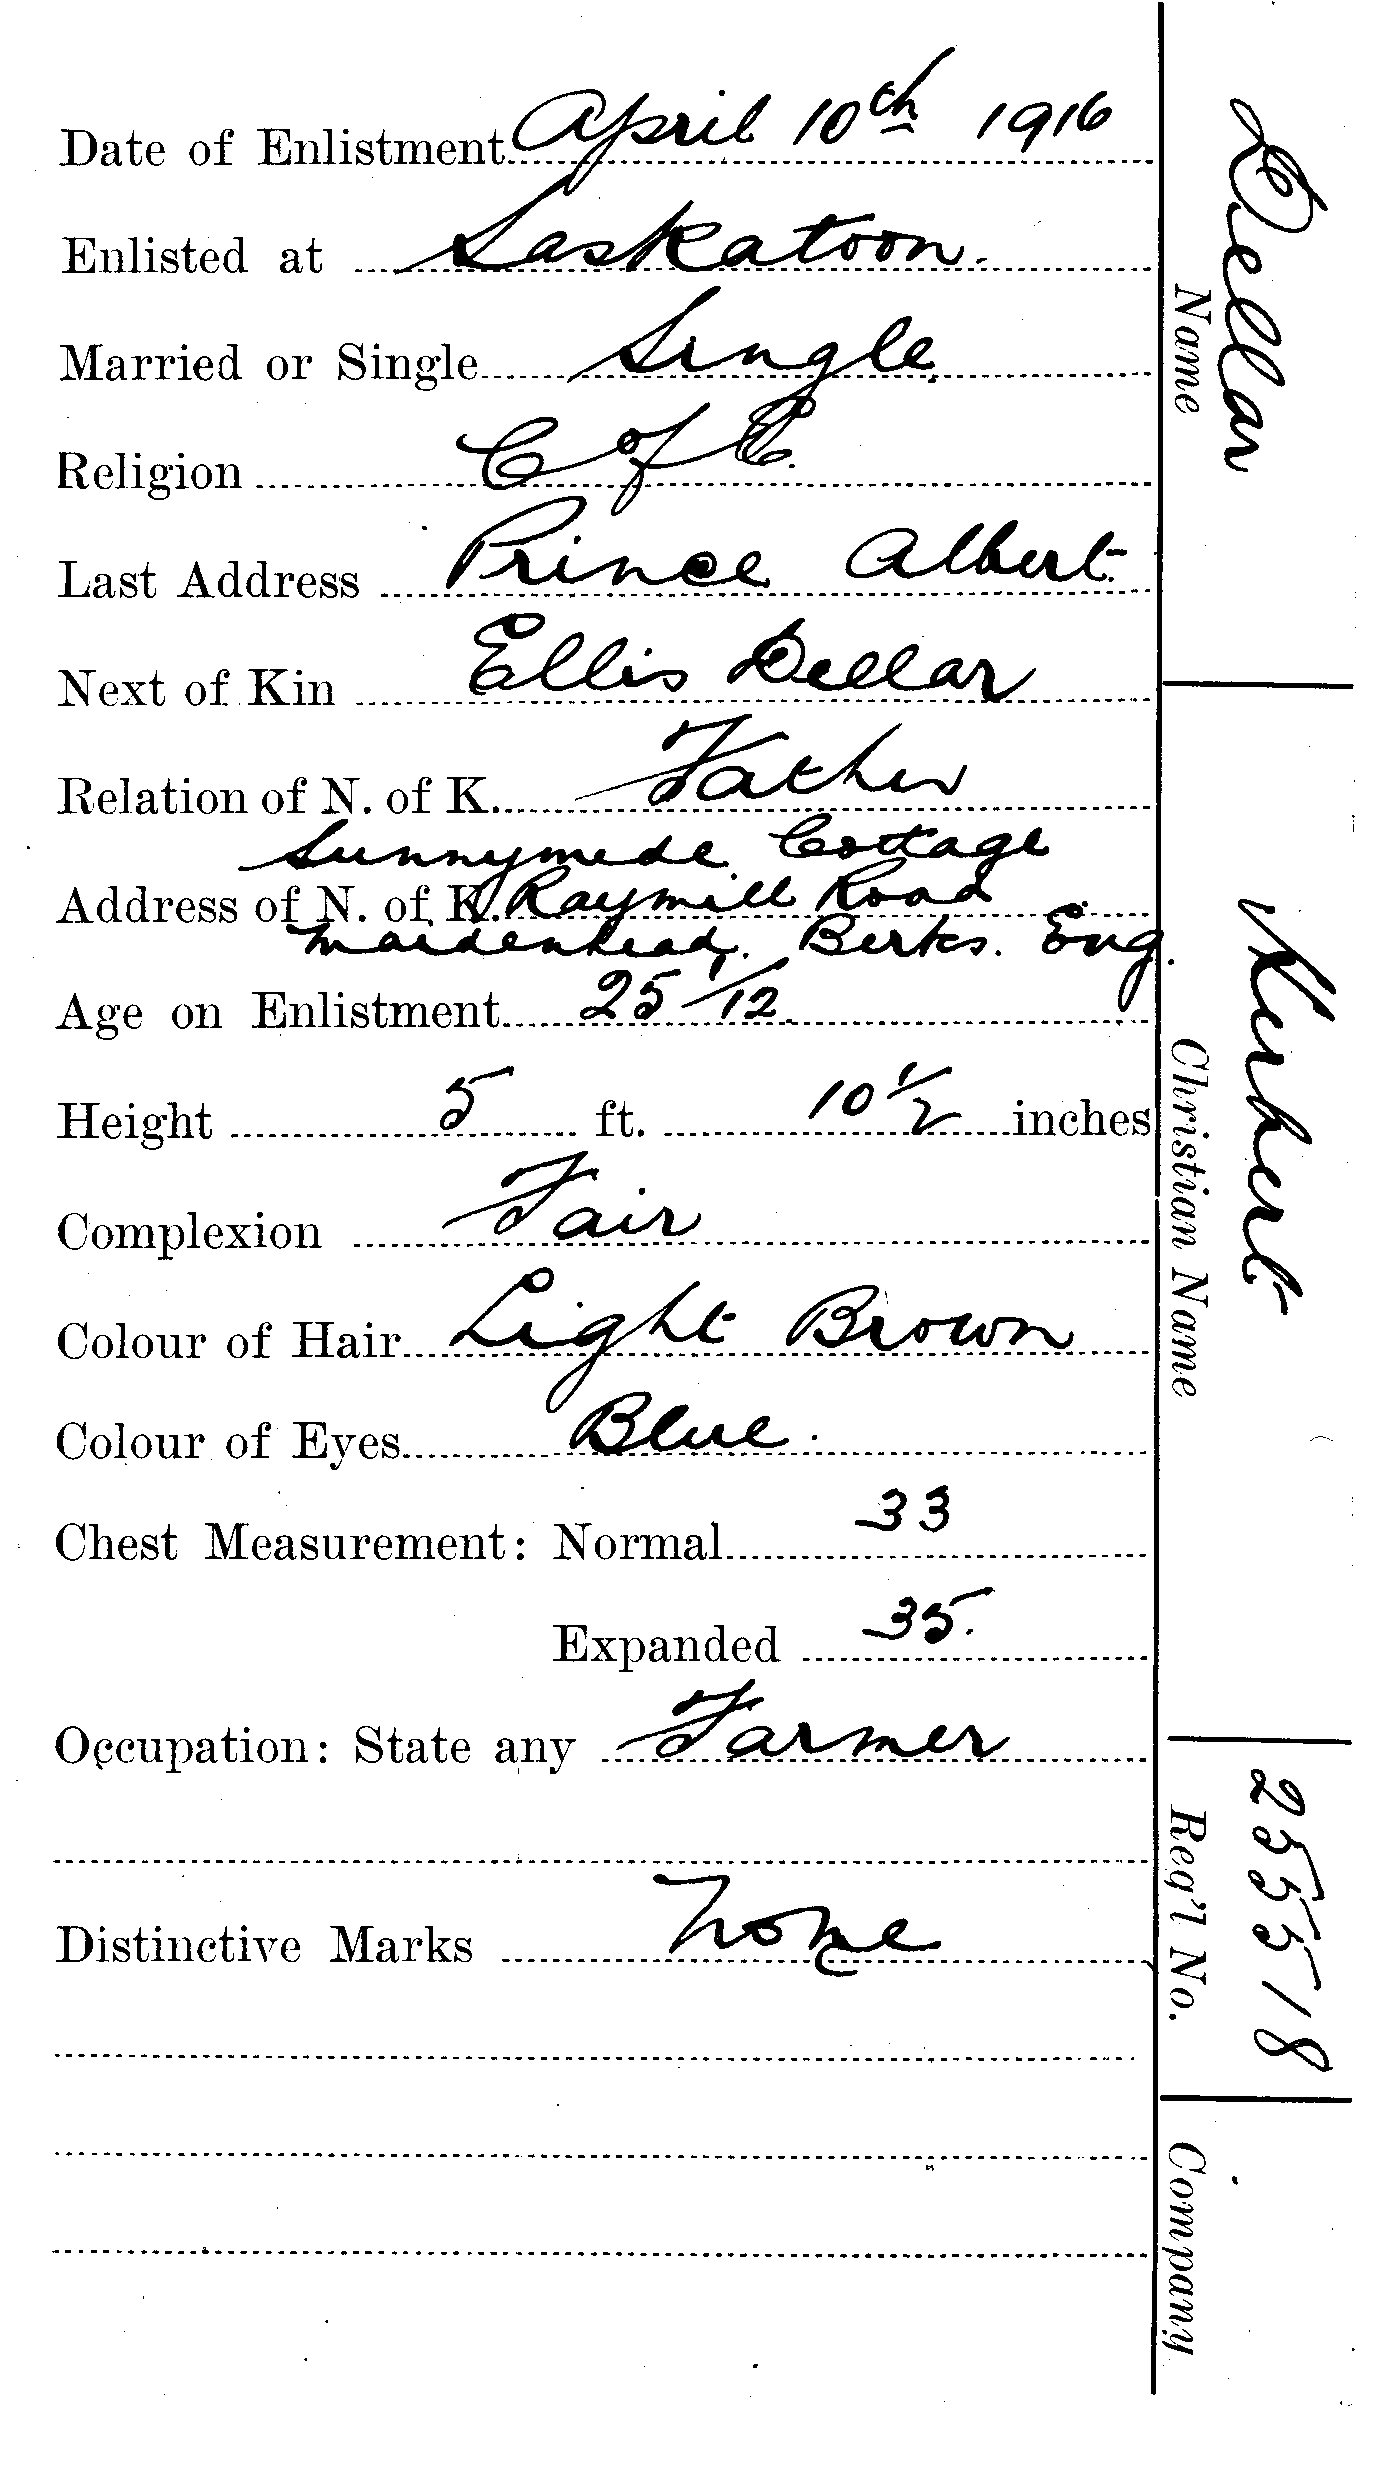 Date of Enlistment April 10th 1916
Enlisted at Saskatoon.
Married or Single Single
Religion C of E.
Last Address Prince Albert
Next of Kin Ellis Dellar
Relation of N. of K. Father
Sunnymede Cottage
Address of N. of K. Raymill Road
Maidenhead, Berks. Eng.
Age on Enlistment 25 1/12
Height 5 ft. 10 1/2 inches
Complexion Fair
Colour of Hair Light Brown
Colour of Eyes Blue.
Chest Measurement: Normal 33
Expanded 35.
Occupation: State any Farmer
Distinctive Marks None
Dellar
Name
Herbert
Christian Name
255518
Reg'l No.
Company